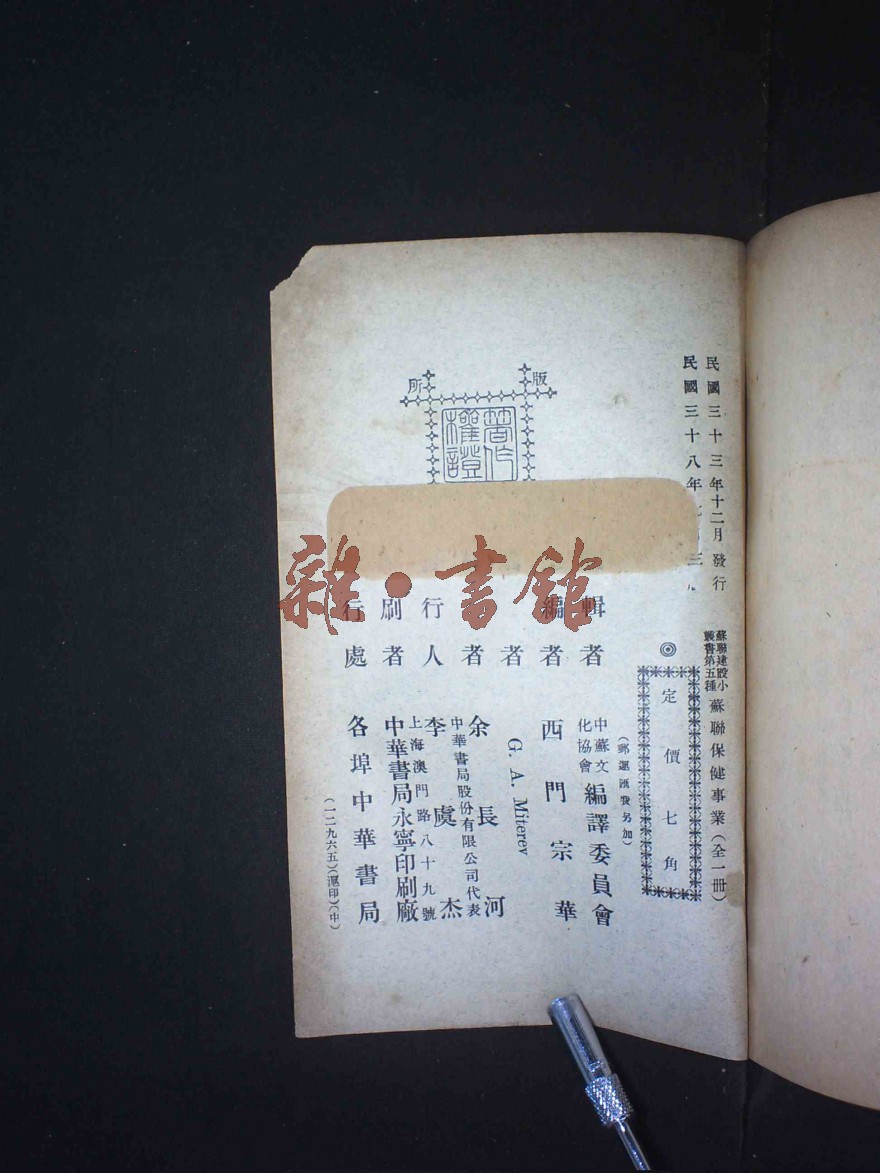 民國三十三年十二月發行
民國三十八年 三
蘇聯建設小叢書第五種 蘇聯保健事業(全一冊)
◎定價七角
(郵運匯費另加)
輯者 中蘇文化協會編譯委員會
編者 西門宗華
者 G. A. Miterev
者 余長河
行人 李虞杰
中華書局股份有限公司代表
刷者 中華書局永寧印刷廠
上海澳門路八十九號
行處 各埠中華書局
(一二九六五)(滬印)(中)
版
所
著作權證
雜·書館